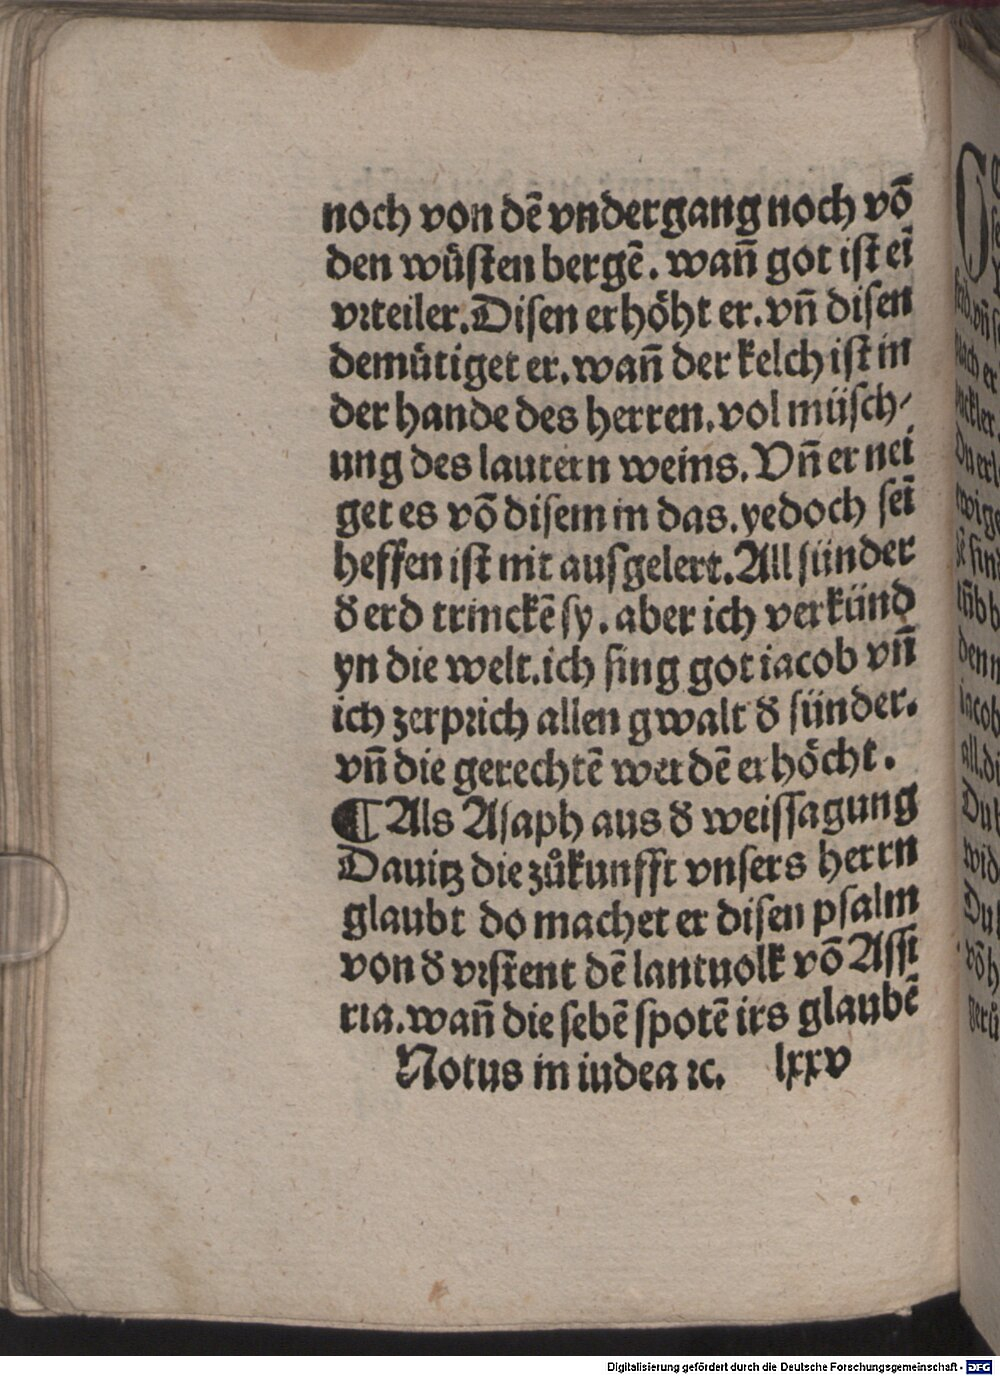 noch von dē vndergang noch vō
den wüsten bergē. wañ got ist eī
vrteiler. Disen erhöht er. vñ disen
demütiget er. wañ der kelch ist in
der hande des herren. vol müsch⸗
ung des lautern weins. Vñ er nei
get es vō disem in das. yedoch seī
heffen ist nit ausgelert. All sünder
δ erd trinckē sy. aber ich verkünd
yn die welt. ich sing got iacob vñ
ich zerprich allen gwalt δ sünder.
vñ die gerechtē werdē erhöcht.
¶ Als Asaph aus δ weissagung
Dauitz die zůkunfft vnsers herrn
glaubt do machet er disen psalm
von δ vrstent dē lantuolk vō Assi
ria. wañ die sebē spotē irs glaubē
Notus in iudea ꝛc. lxxv
Digitalisierung gefördert durch die Deutsche Forschungsgemeinschaft - DFG